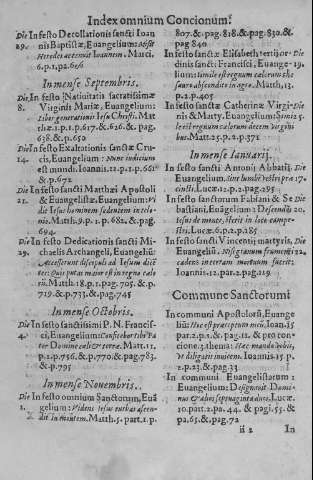 Index omnium Concionum.
Die In festo Decollationis sancti Ioan
29. nis Baptistæ, Euangelium: Misit
Herodes ac tenuit Ioannem. Marci.
6.p.1,
In mense Septembris.
Die In festo Natiuitatis sacratissimæ
8. Virginis Mariæ, Euangelium:
Liber generationis Iesu Christi. Mat
thæ.1.p.1.p.617.& 626.& pag.
638.& p.650
Die In festo Exaltationis sanctæ Cru-
14. cis, Euangelium: Nunc iudicium
est mundi. Ioannis.12.p.1.p.661
& p.672
Die In festo sancti Matthæi Apostoli
21. & Euangelistæ. Euangelium: Vi
dit Iesus hominem sedentem in telo-
nio. Matth.9.p.1.p.682.& pag.
694.
Die In festo Dedicationis sancti Mi-
29. chaelis Archangeli, Euangeliũ:
Accesserunt discipuli ad Iesum dicẽ
tes: Quis putas maior est in regno cælo
rũ. Matth.18.p.1.pag.705.& p.
719.& p.733.& pag.745
In mense Octobris.
Die In festo sanctissimi P. N. Francis-
4. ci, Euangelium: Confiteor tibi Pa
ter Domine cæli & terræ. Matt.11.
p.1.p.756.& p.770.& pag.783.
& p.795
In mense Nouembris.
Die In festo omnium Sanctorum, Euã
1. gelium: Videns Iesus turbas ascen-
dit in montem. Matth.5.part.1.p.
807.& pag.818.& pag.830.&
pag 840
In festo sanctæ Elisabeth tertij or- Die
dinis sancti Francisci, Euange- 19.
lium: Simile est regnum cælorum the
sauro abscondito in agro. Matth.13.
p.2.p.405
In festo sanctæ Catherinæ Virgi- Die
nis & Marty. Euangelium: Simi 25.
le est regnum cælorum decem Virgini
bus. Matt.25.p.2.p.371
In mense Ianuarij.
In festo sancti Antonij Abbatis, Die
Euangelium. Sint lumbi vestri præ 17.
cincti. Lucæ.12.p.2.pag.295
In festo sanctorum Fabiani & Se Die
bastiani, Euãgelium: Descendẽs 20.
Iesus de monte, stetit in loco campe-
stri. Lucæ.6.p.2.p.185
In festo sancti Vincentij martyris, Die
Euangeliũ. Nisi granum frumenti 22.
cadens in terram mortuum fuerit:
Ioannis.12.par.2.pag.219
Commune Sanctorum
In communi Apostolorũ, Euange
liũ: Hoc est præceptum meũ. Ioan.15
par.2.p.1.& pag.11. & pro con-
cione.3.thema: Hæc mando vobis,
vt diligatis inuicem. Ioannis.15 p.
2.p.23.& pag.33
In communi Euangelistarum:
Euangelium: Designauit Domi-
nus & alios septuaginta duos. Lucæ.
10.part.2.pa.44. & pagi.55.&
pa.65.& pag.72
ii 2 In